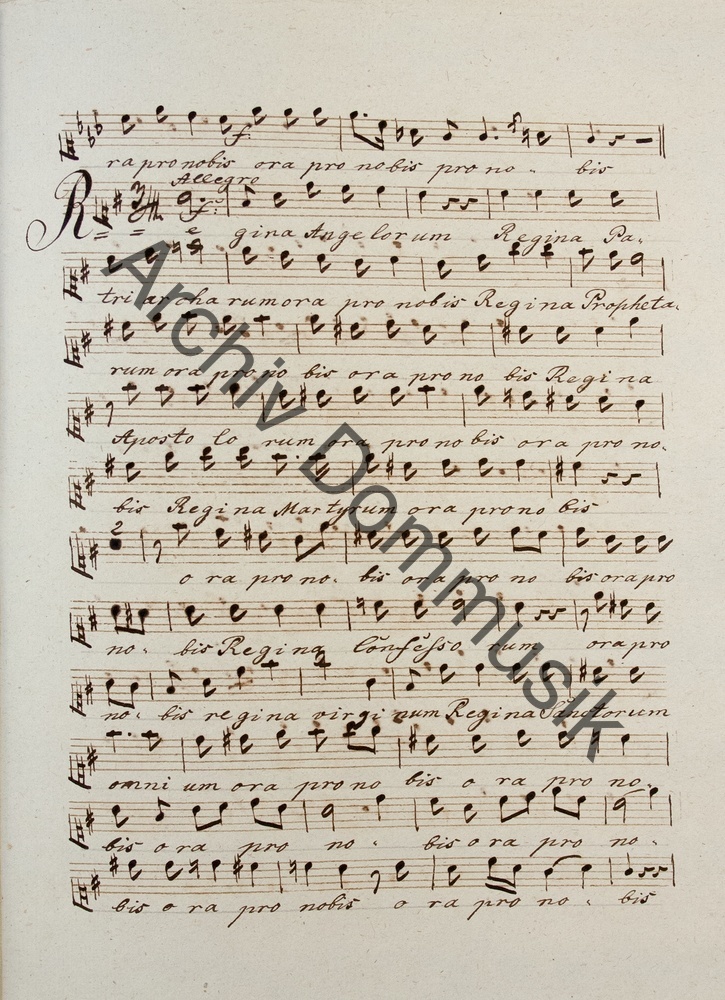 ra pro nobis ora pro nobis pro no - bis
Allegro
R = = e gina Angelorum Regina Pa-
tri archa rum ora pro nobis Regina Propheta-
rum ora pro no bis ora pro no bis Regina
Aposto lo rum ora pro no bis ora pro no-
bis Regina Martyrum ora pro no bis
2
o ra pro no- bis ora pro no bis ora pro
no- bis Regina Confesso rum ora pro
no- bis regina virgi num Regina Sanctorum
omni um ora pro no bis o ra pro no-
bis o ra pro no- bis o ra pro no-
bis o ra pro nobis o ra pro no - bis
Archiv Dommusik